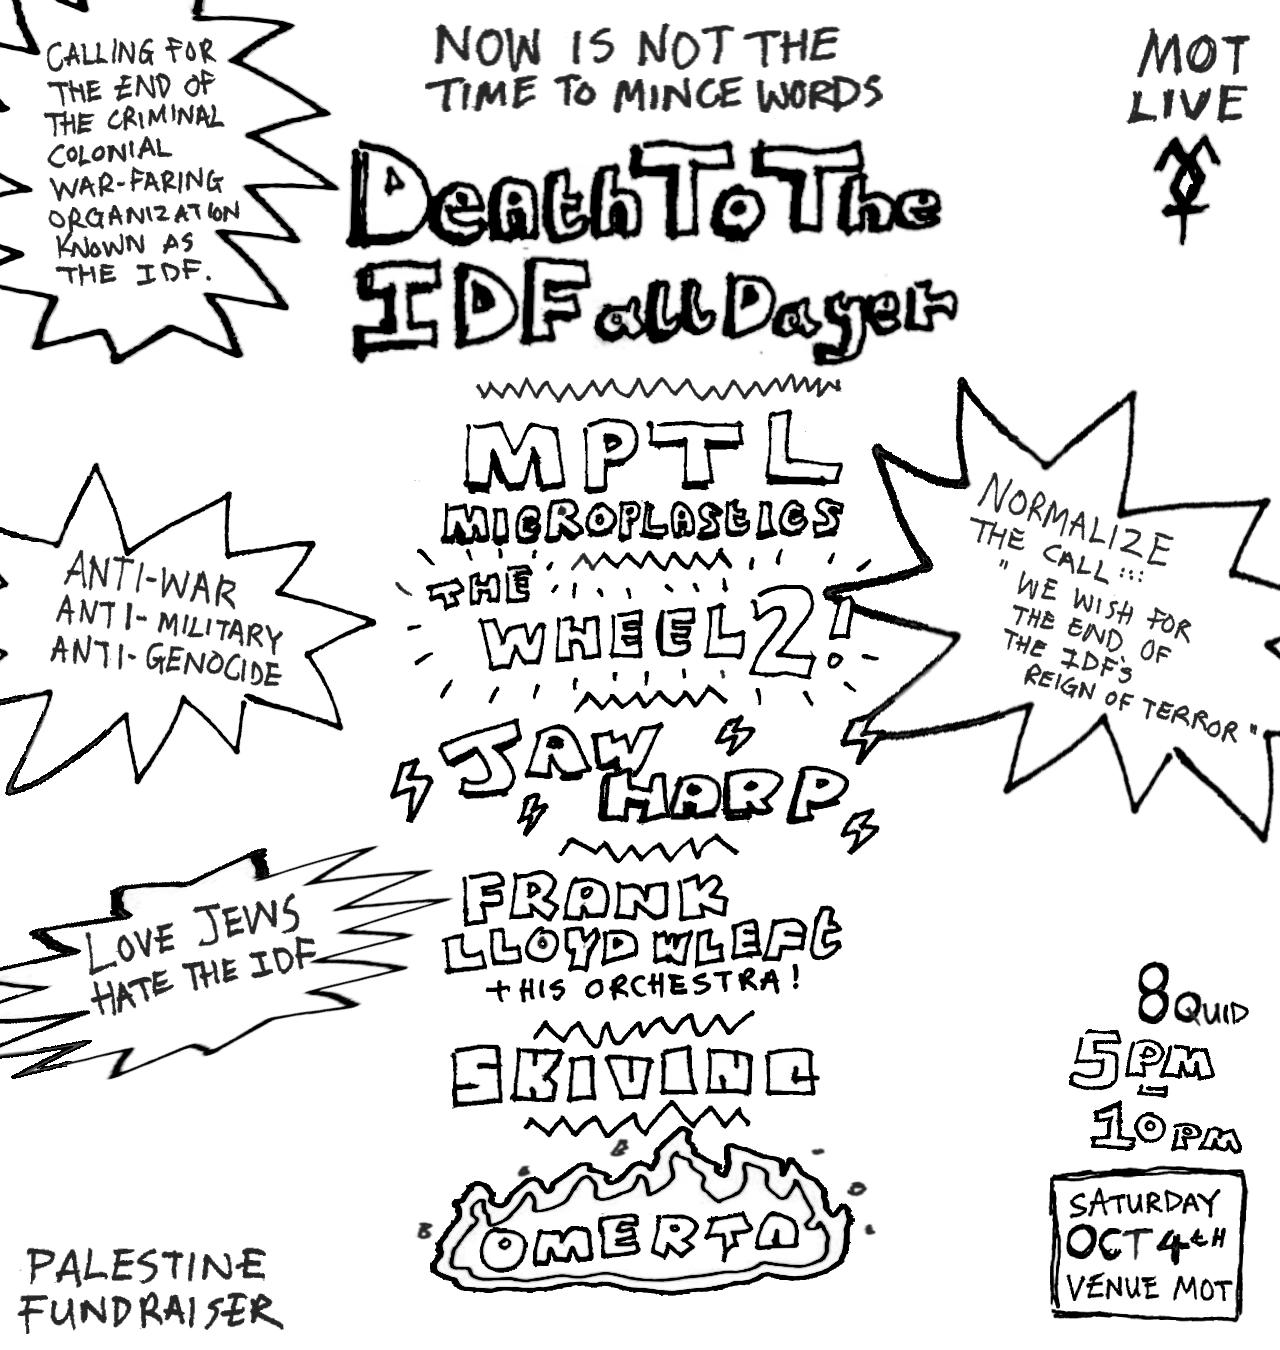 CALLING FOR
THE END OF
THE CRIMINAL
COLONIAL
WAR-FARING
ORGANIZATION
KNOWN AS
THE IDF.
NOW IS NOT THE
TIME TO MINCE WORDS
Death To The
IDF all Dayer
MOT
LIVE
MPTL
MICROPLASTICS
THE
WHEEL2!
JAW
HARP
FRANK
LLOYD WLEFt
+ HIS ORCHESTRA!
SKIVING
OMERTA
ANTI-WAR
ANTI-MILITARY
ANTI-GENOCIDE
NORMALIZE
THE CALL :::
"WE WISH FOR
THE END OF
THE IDF's
REIGN OF TERROR"
LOVE JEWS
HATE THE IDF
8 QUID
5PM
-
10PM
SATURDAY
OCT 4tH
VENUE MOT
PALESTINE
FUNDRAISER